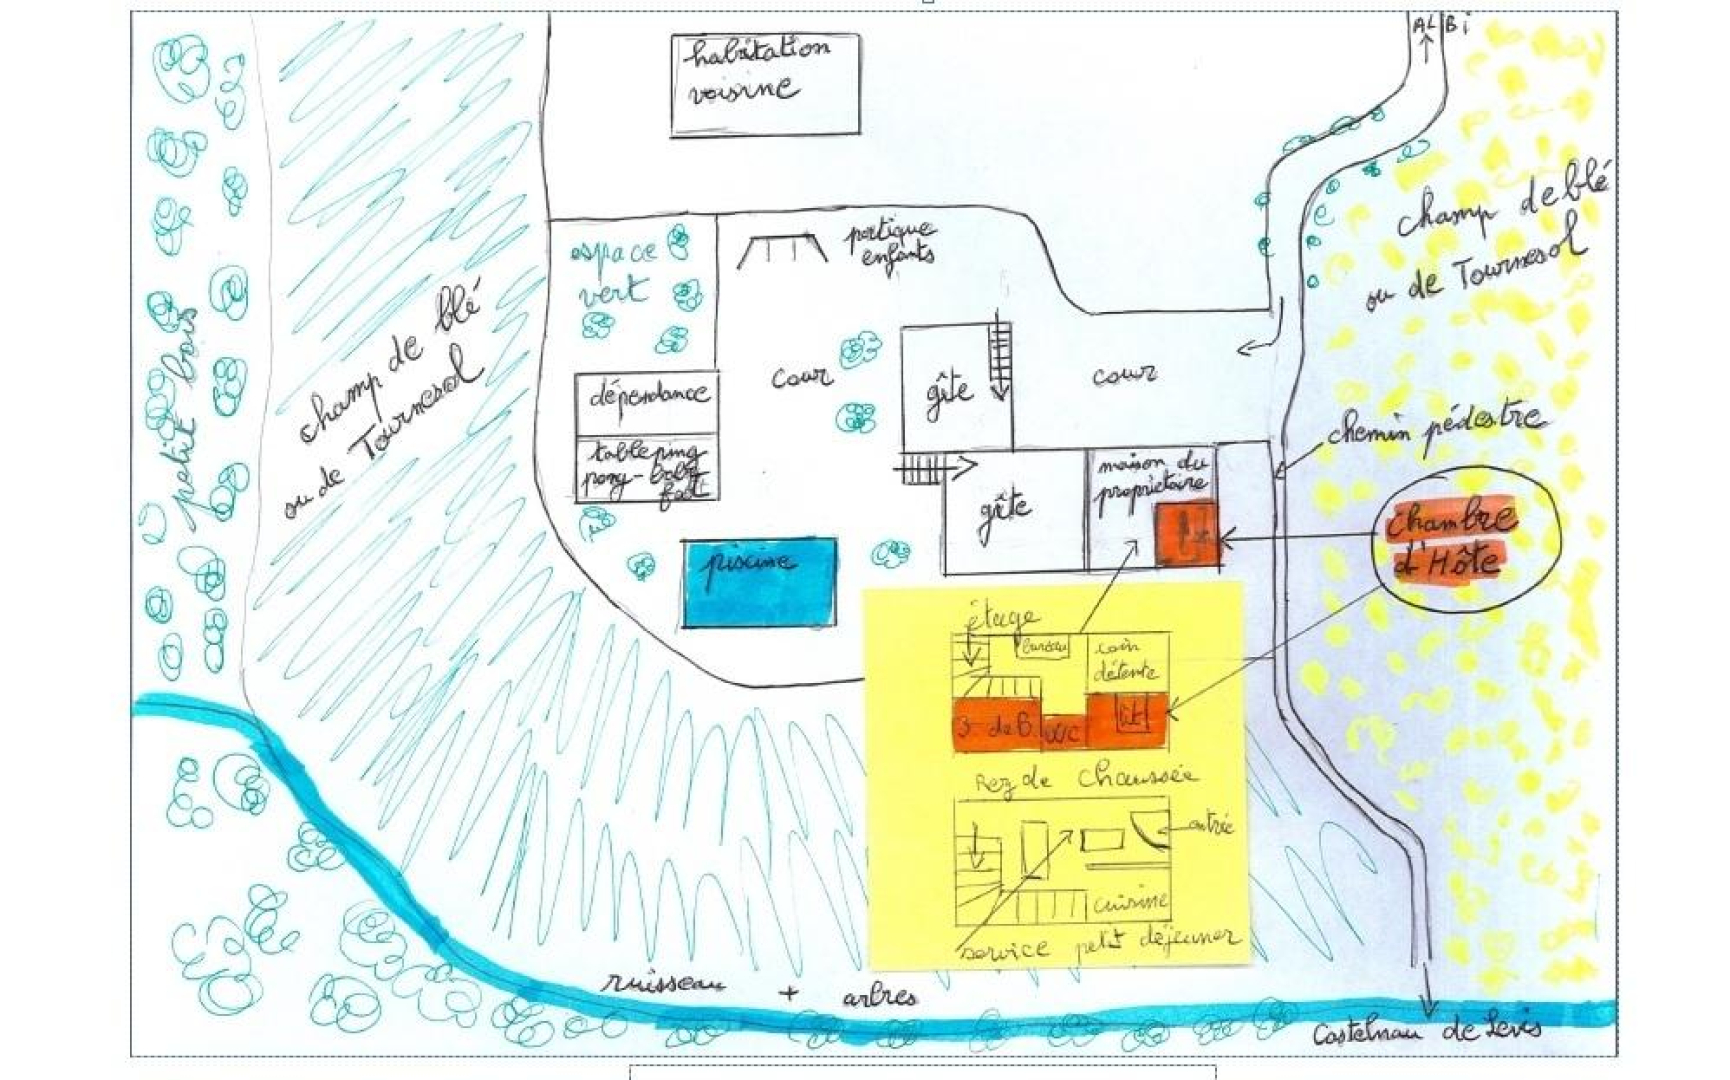 ALBi
habitation
voisine
champ de blé
ou de Tournesol
portique
enfants
espace
vert
champ de blé
ou de Tournesol
petit bois
dépendance
cour
gîte
cour
table ping
pong - baby
foot
chemin pédestre
maison du
propriétaire
gîte
chambre
d'Hôte
piscine
étage
bureau
coin
détente
S de B
WC
lit
Rez de Chaussée
entrée
cuisine
service petit déjeuner
ruisseau + arbres
Castelnau de Levis